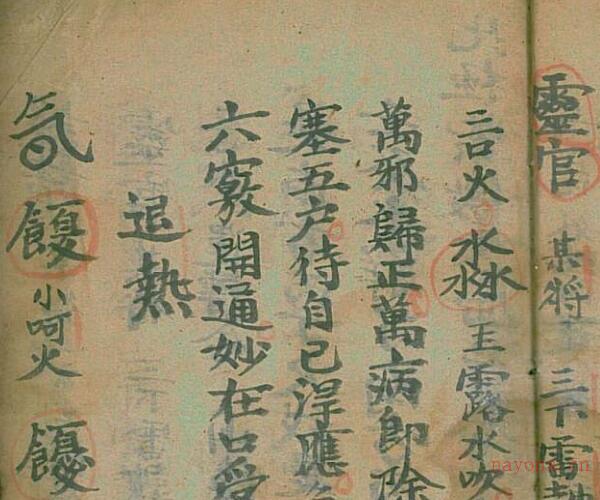 靈官 某將 三下雷
三口火 淼 玉露水吹
萬邪歸正萬病即除
塞五户待自己淂應
六竅開通妙在口受
退熱
小呵火
nayona.cn